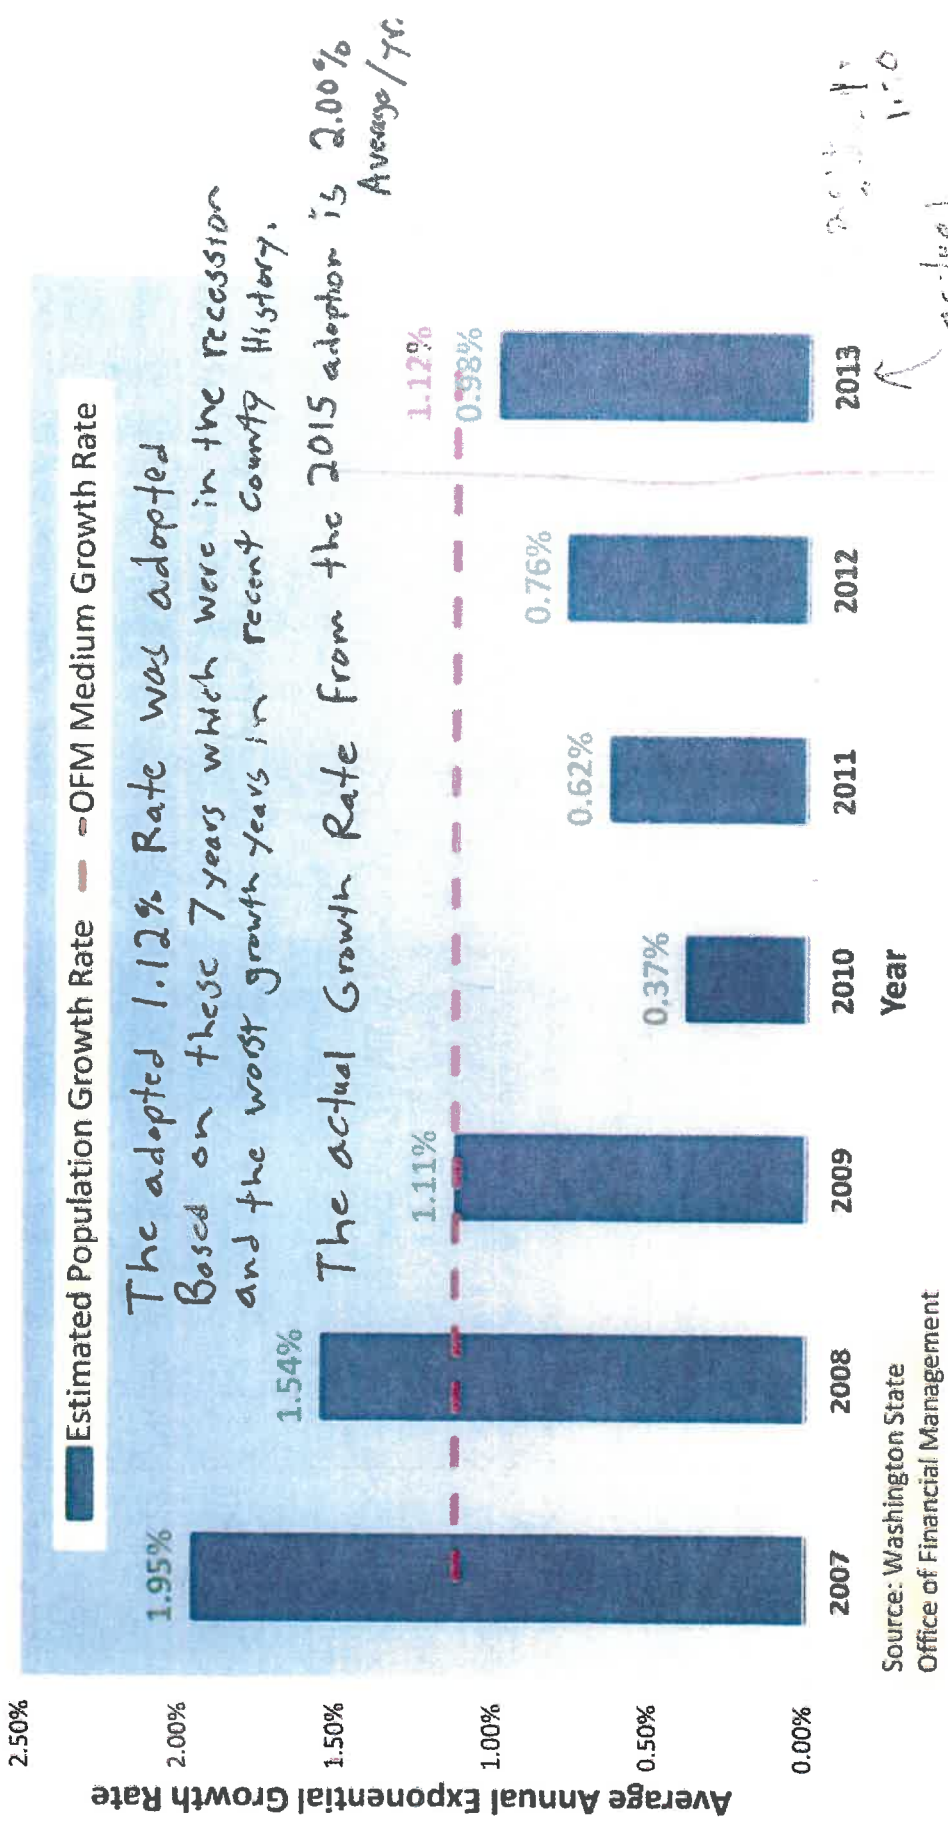 Estimated Population Growth Rate - OFM Medium Growth Rate
The adopted 1.12% Rate was adopted
Based on these 7 years which were in the recession
and the worst growth years in recent County History.
The actual Growth Rate from the 2015 adoption is 2.00%
Average/yr.
2.50%
2.00%
1.50%
1.00%
0.50%
0.00%
Average Annual Exponential Growth Rate
1.95%
1.54%
1.11%
0.37%
0.62%
0.76%
1.12%
0.98%
2007
2008
2009
2010
2011
2012
2013
Year
Source: Washington State
Office of Financial Management